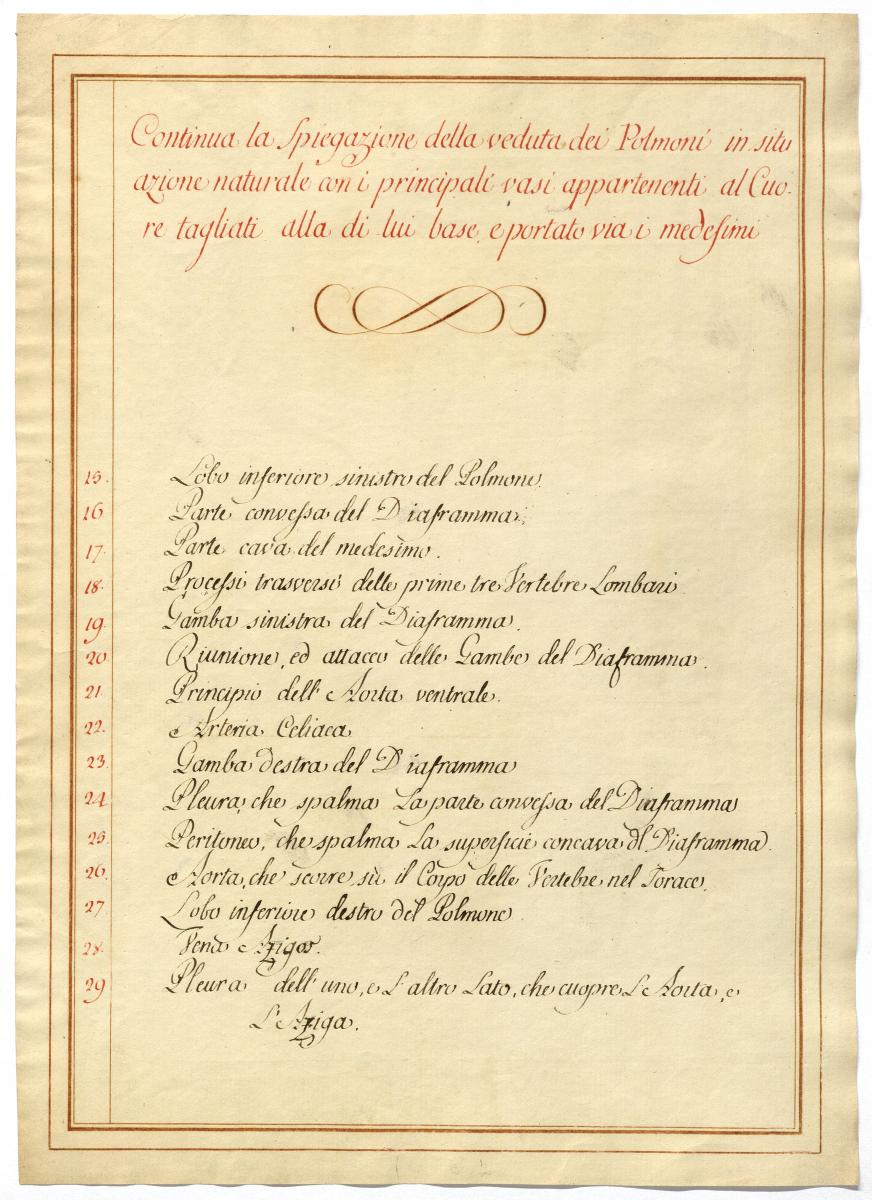 Continua la Spiegazione della veduta dei Polmoni in situ
azione naturale con i principali vasi appartenenti al Cuo-
re tagliati alla di lui base, e portato via i medesimi
15. Lobo inferiore sinistro del Polmone.
16 Parte convessa del Diaframma.
17. Parte cava del medesimo.
18. Processi trasversi delle prime tre Vertebre Lombari
19 Gamba sinistra del Diaframma.
20 Riunione, ed attacco delle Gambe del Diaframma.
21. Principio dell' Aorta ventrale.
22. Arteria Celiaca
23. Gamba destra del Diaframma
24 Pleura, che spalma la parte convessa del Diaframma
25. Peritoneo, che spalma la superficie concava dl Diaframma.
26. Aorta, che scorre sù il Corpo delle Vertebre nel Torace.
27 Lobo inferiore destro del Polmone.
28. Vena Azigos.
29 Pleura dell' uno, e l' altro Lato, che cuopre l' Aorta, e
L' Aziga.